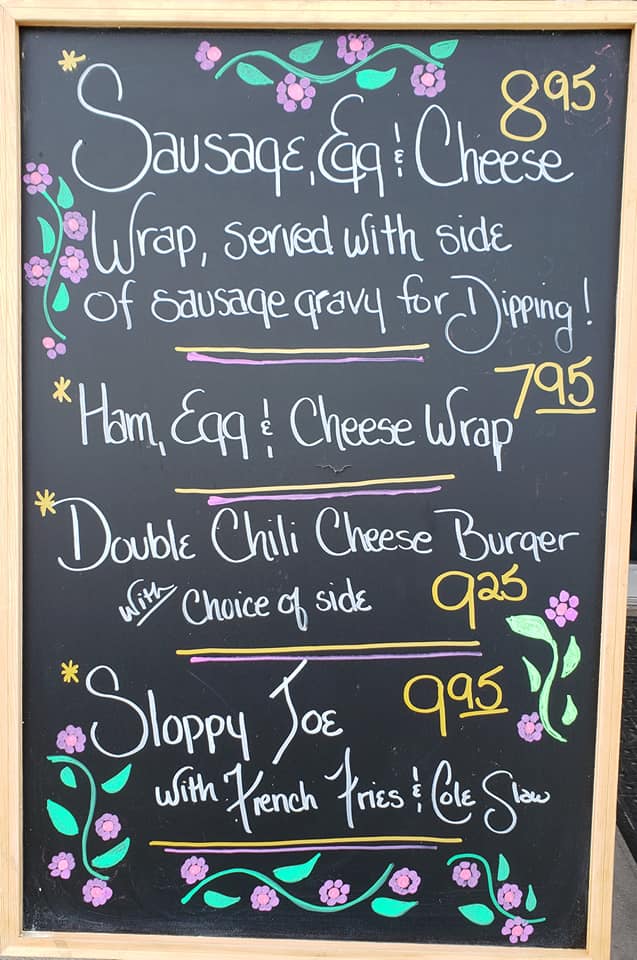 * Sausage, Egg & Cheese 8⁹⁵
Wrap, served with side
of sausage gravy for Dipping!
* Ham, Egg & Cheese Wrap 7⁹⁵
* Double Chili Cheese Burger
With Choice of side 9²⁵
* Sloppy Joe 9⁹⁵
with French Fries & Cole Slaw